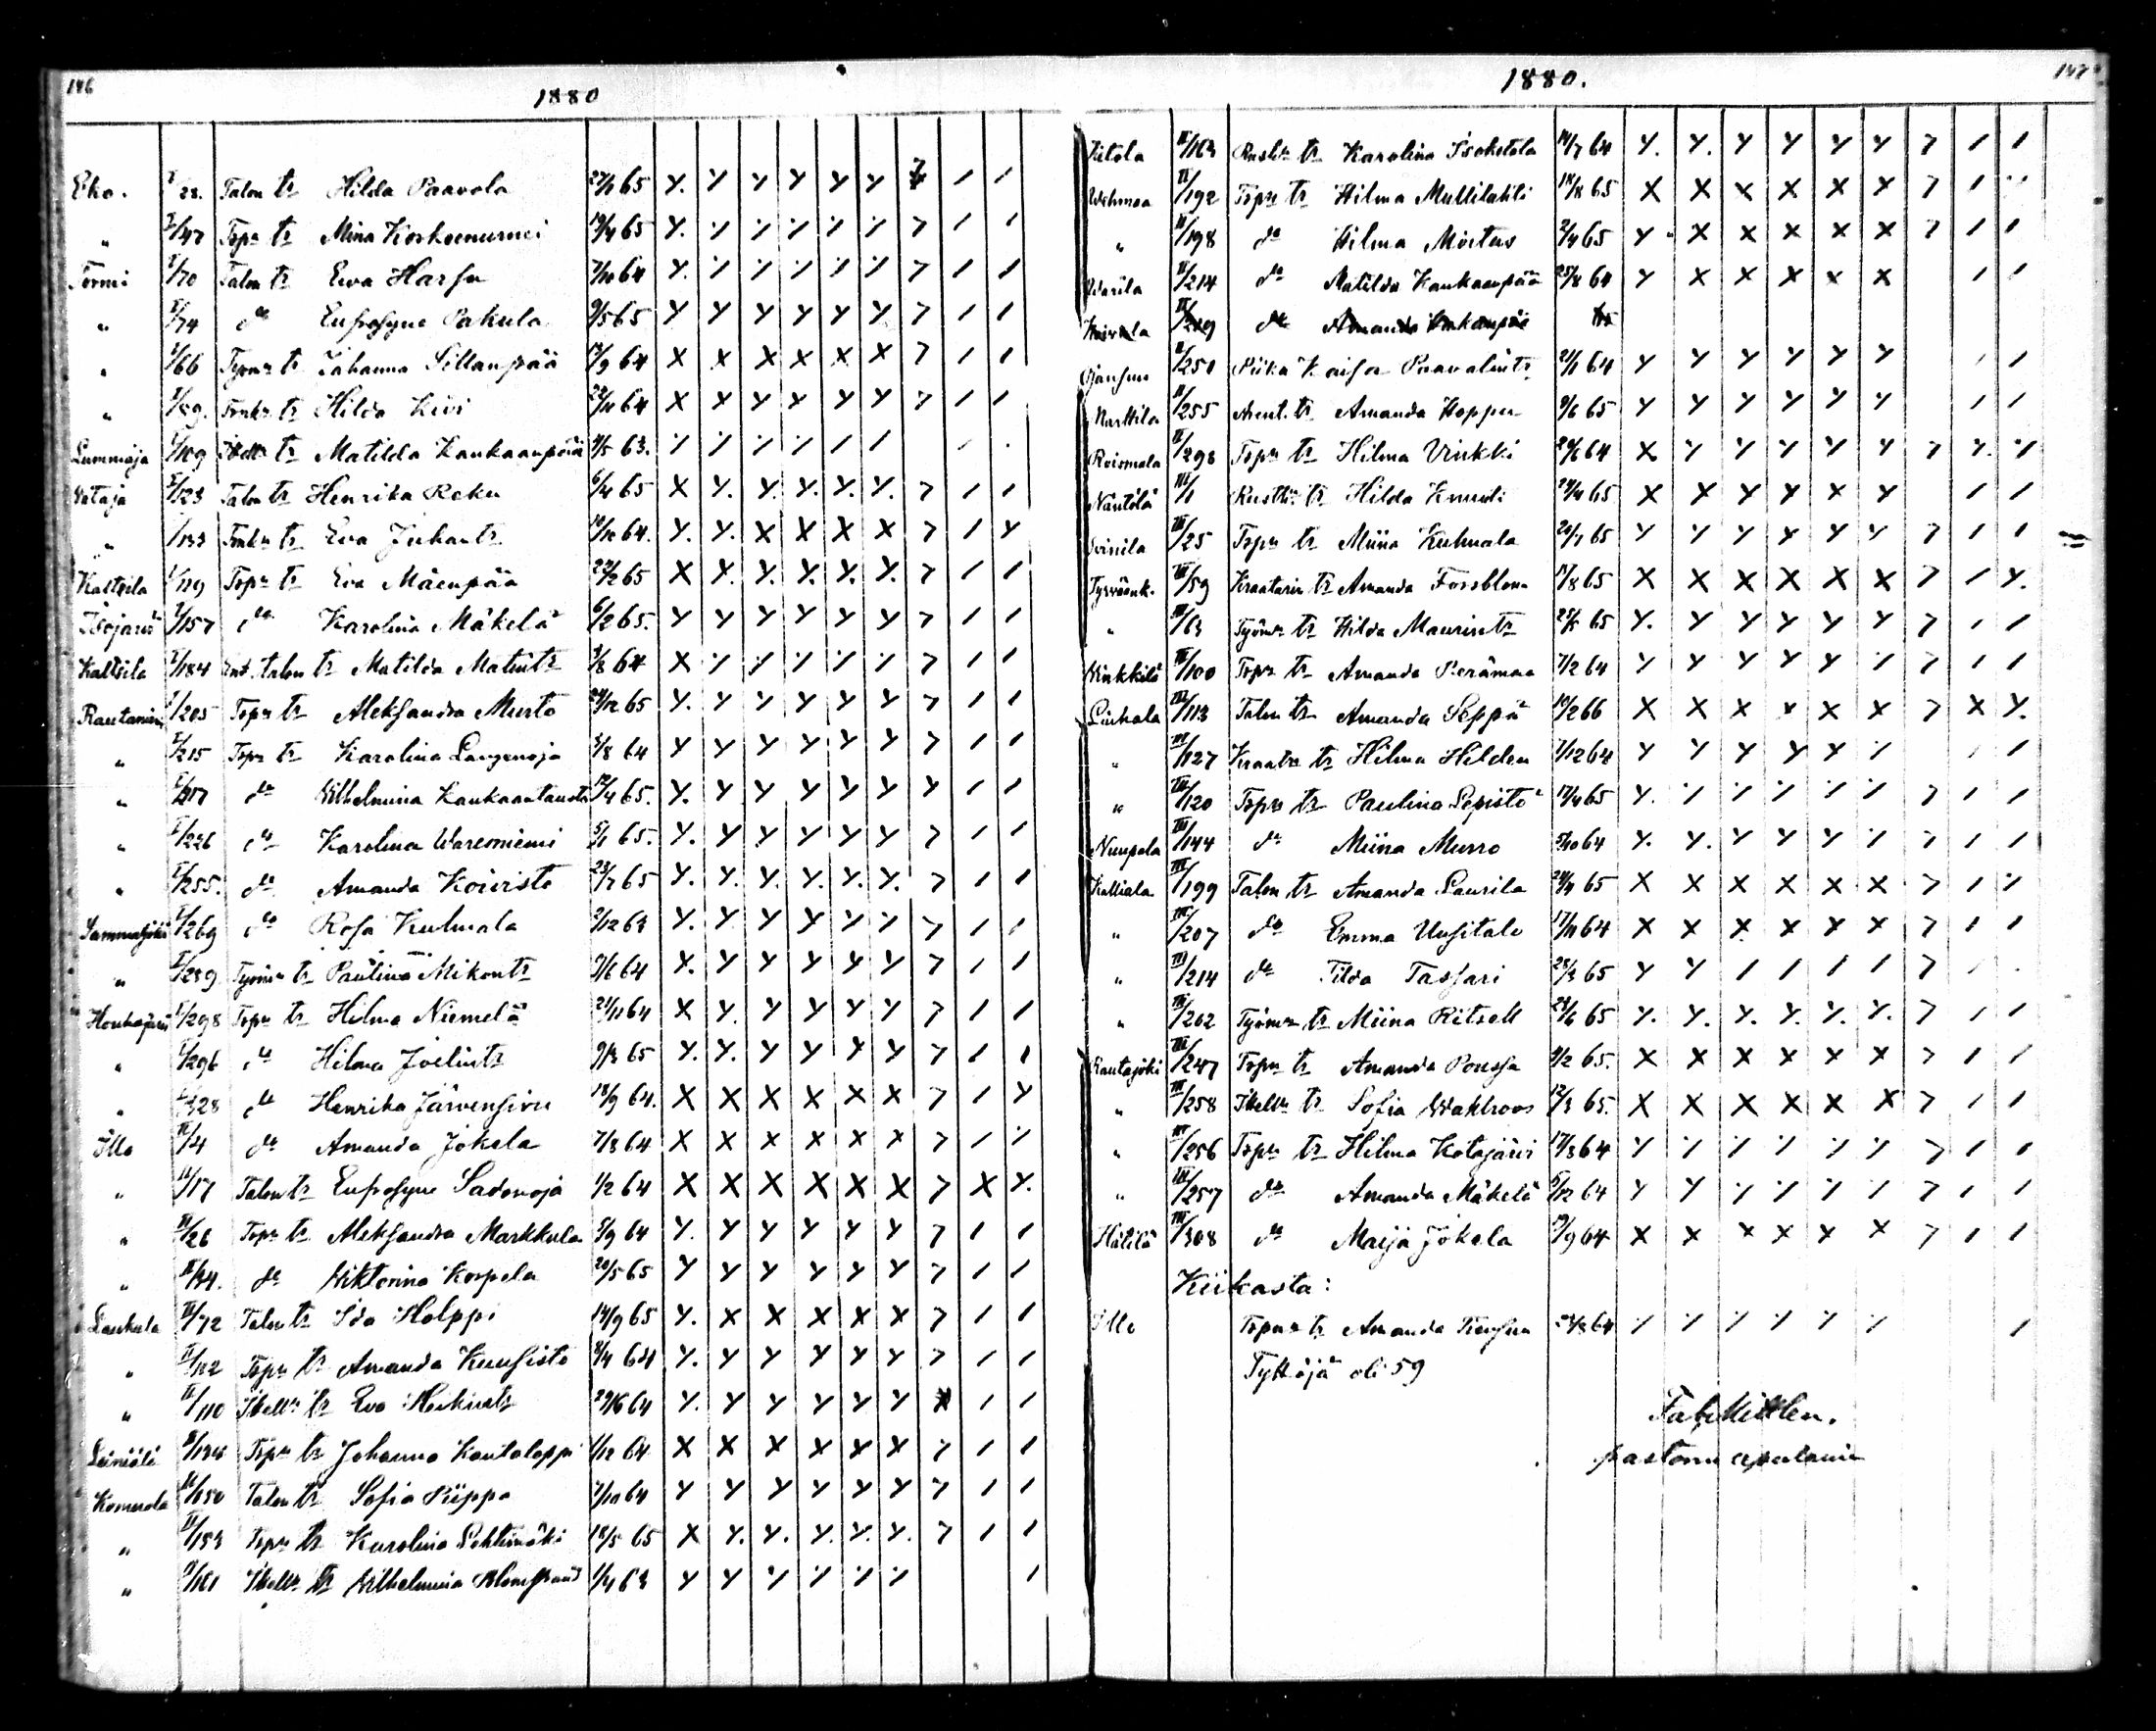 146
1880
Eko. I/28. Talon tr Hilda Paavola 27/1 65 Y. Y Y Y Y Y 7 / /
" I/47 Topr tr Mina Koskoenurmi 19/4 65 Y. ٪ ٪ ٪ ٪ ٪ 7 / /
Tormi I/70 Talon tr Ewa Harju 7/10 64 Y. ٪ ٪ ٪ ٪ ٪ 7 / /
" I/74 do Eufrosyne Pakula 9/5 65 Y Y Y Y Y Y 7 / /
" I/66 Työm tr Johanna Sillanpää 12/9 64 X X X X X X 7 / /
" I/89. tr Hilda Kivi 64 X Y Y Y Y Y 7 / /
Lummaja I/109 Itell tr Matilda Kankaanpää 4/5 63. ٪ ٪ ٪ ٪ / /
Vataja I/123 Talon tr Henrika Reku 6/4 65 X Y. Y. Y. Y. Y. 7 / /
" I/133 tr Eva Juhantr 10/10 64. Y. Y. X X X X 7 / Y
Kaltsila I/119 Topr tr Eva Mäenpää 22/2 65 X Y. Y. Y. Y. Y. 7 / /
Isojärvi I/157 do Karolina Mäkelä 6/2 65. Y Y Y Y Y Y 7 / /
Kaltsila I/184 Ent. talon tr Matilda Matintr 3/8 64 X ٪ ٪ ٪ ٪ ٪ 7 / /
I/205 Topr tr Aleksandra Musto 24/12 65 Y. Y Y Y Y Y 7 / /
" I/215 Topr tr Karolina 5/8 64 Y Y Y Y Y Y 7 / /
" I/217 do Wilhelmina Kankaantausta 12/4 65. Y. Y Y Y Y Y 7 / /
" I/226 do Karolina Waremiemi 5/1 65. Y. Y Y Y Y Y 7 / /
" I/255. do Amanda Koivisto 23/7 65 Y. Y. Y. Y. Y. Y. 7 / /
Sammaljoki I/269 do Rosa Kulmala 2/12 63 Y. Y. Y Y Y ٪ 7 / /
" I/289 Työm tr Paulina Mikontr 9/6 64 X. Y Y Y Y Y 7 / /
Houhajärvi I/298 Topr tr Hilma Niemelä 21/11 64 X Y. Y Y Y Y 7 / /
" I/296 do Hilma Joelintr 9/3 65 Y. Y. Y Y Y Y 7 / /
" I/328 do Henrika Järvensivu 18/9 64. X X X X X X 7 / Y
Illo II/4 do Amanda Jokela 7/3 64 X X X X X X 7 / ٪
" II/17 Talon tr Eufrosyne Sadenoja 1/2 64 X X X X X X 7 X Y.
" II/26 Topr tr Aleksandra Markkula 5/9 64 Y. Y Y Y Y Y 7 / /
" II/34. do Wiktorina Korpela 20/5 65 Y Y Y Y Y Y 7 / /
Laukula II/72 Talon tr Ida Holppi 14/9 65 Y. X X X X X 7 / /
" II/112 Topr tr Amanda Kuusisto 8/4 64 Y. Y Y Y Y Y 7 / /
" II/110 Itell tr Eva Heikintr 29/6 64 Y. Y Y Y Y Y / /
II/134 Topr tr Johanna Kautaloppi 1/12 64 X X X X X X 7 / /
II/150 Talon tr Sofia Kiippa 7/10 64 Y Y Y Y Y Y 7 / /
" II/153 Topr tr Karolina Lehtimäki 18/5 65 X Y. Y. Y. Y. Y. 7 / /
" II/161 Itell tr Wilhelmina 1/4 63 Y Y ٪ ٪ ٪ ٪ /
147
1880.
II/163 Rusth tr Karolina Isoketola 14/7 64 Y. Y. Y Y Y Y 7 / /
Wehmaa II/192 Topr tr Hilma Mullilahti 18/8 65 X X X X X X 7 / ٪
" II/198 do Hilma 2/4 65 Y X X X X X 7 / /
II/214 do Matilda Kankaanpää 25/8 64 Y X X X X X / /
II/219 do Amanda
II/250 Piika Kaisa Paavalintr 21/1 64 Y Y Y Y Y Y / /
Marttila II/255 tr Amanda Hopper 9/6 65 Y Y Y Y Y Y / /
Roismala II/298 Topr tr Hilma Vinkki 64 X Y Y Y Y Y 7 Y. ٪
Nantilä III/1 Rusth tr Hilda Knuuti 65 X X Y Y X Y / /
III/25 Topr tr Miina Kulmala 20/7 65 Y Y Y Y Y Y 7 / /
III/59 Kraatarin tr Amanda Forsblom 11/8 65 X X X X X X 7 / Y.
" III/63 Työm tr Hilda Maurintr 65 Y. Y Y Y Y Y 7 / /
Kinkkilä III/100 Topr tr Amanda Perämaa 7/2 64 Y Y Y Y Y ٪ 7 / /
Liuhala III/113 Talon tr Amanda Seppä 19/2 66 X X X X X X 7 X Y.
" III/127 Kraatr tr Hilma Hilden 7/12 64 Y Y Y Y Y ٪ / /
" III/120 Topr tr Paulina Sepistö 17/4 65 Y. ٪ ٪ ٪ ٪ ٪ 7 / /
Nuupala III/144 do Miina Murro 5/10 64 Y. Y. Y Y Y ٪ 7 / /
Kalliala III/199 Talon tr Amanda Laurila 65 X X X X X X 7 / ٪
" III/207 do Emma Uusitalo 17/11 64 X X X X X X 7 / /
" III/214 do Tilda Tassari 28/3 65 Y Y / / / / 7 /
" III/202 Työm tr Miina Ritsell 65 Y. Y. Y. Y. Y. Y. 7 / /
Rautajoki III/247 Topr tr Amanda Poussa 9/2 65. X X X X X X 7 / /
" III/258 Itell tr Sofia Wahlroos 12/3 65. X X X X X X 7 / /
" III/256 Topr tr Hilma Kotajärvi 17/3 64 Y ٪ ٪ ٪ ٪ ٪ 7 / /
" III/257 do Amanda Mäkelä 64 Y Y ٪ ٪ ٪ ٪ 7 / /
III/308 do Maija Jokela 19/9 64 X X X X X X 7 / /
Kiikasta:
Illo Topr tr Amanda 64 ٪ ٪ ٪ ٪ ٪ ٪ /
Tyttöjä oli 59
pastorin apulainen